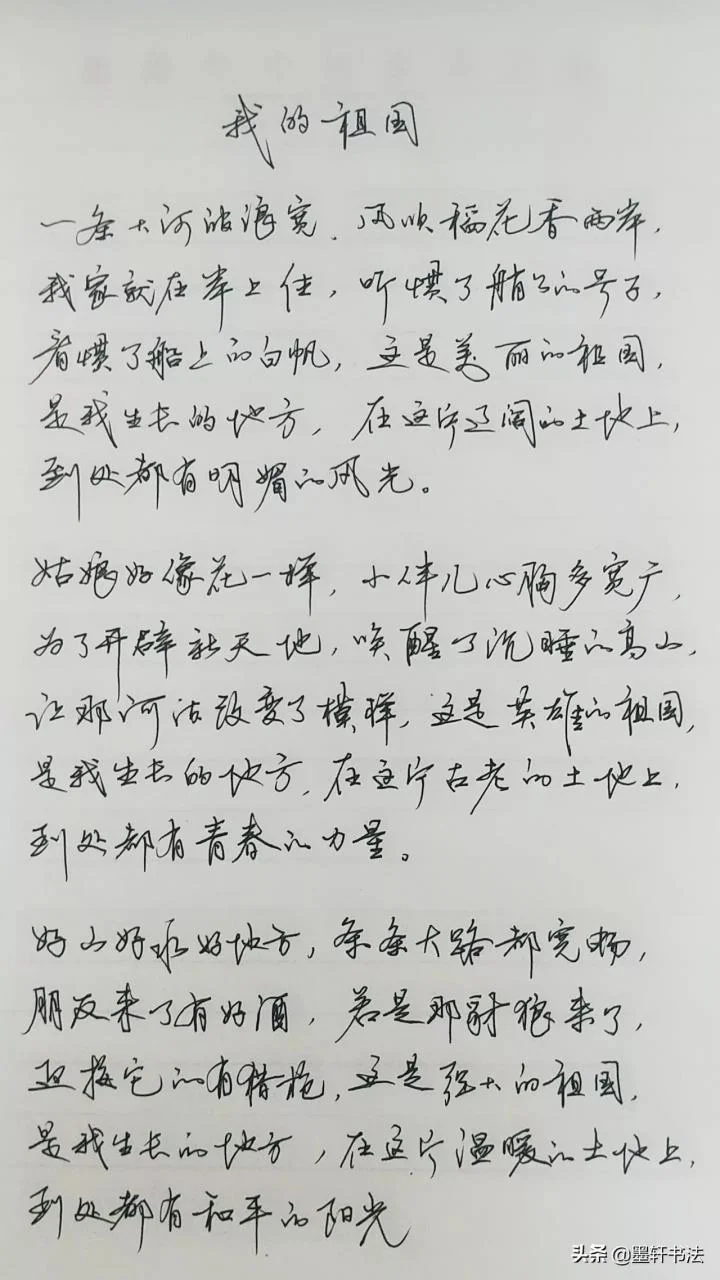 我的祖国
一条大河波浪宽，风吹稻花香两岸，
我家就在岸上住，听惯了艄公的号子，
看惯了船上的白帆，这是美丽的祖国，
是我生长的地方，在这片辽阔的土地上，
到处都有明媚的风光。
姑娘好像花一样，小伙儿心胸多宽广，
为了开辟新天地，唤醒了沉睡的高山，
让那河流改变了模样，这是英雄的祖国，
是我生长的地方，在这片古老的土地上，
到处都有青春的力量。
好山好水好地方，条条大路都宽畅，
朋友来了有好酒，若是那豺狼来了，
迎接它的有猎枪，这是强大的祖国，
是我生长的地方，在这片温暖的土地上，
到处都有和平的阳光
头条 @墨轩书法